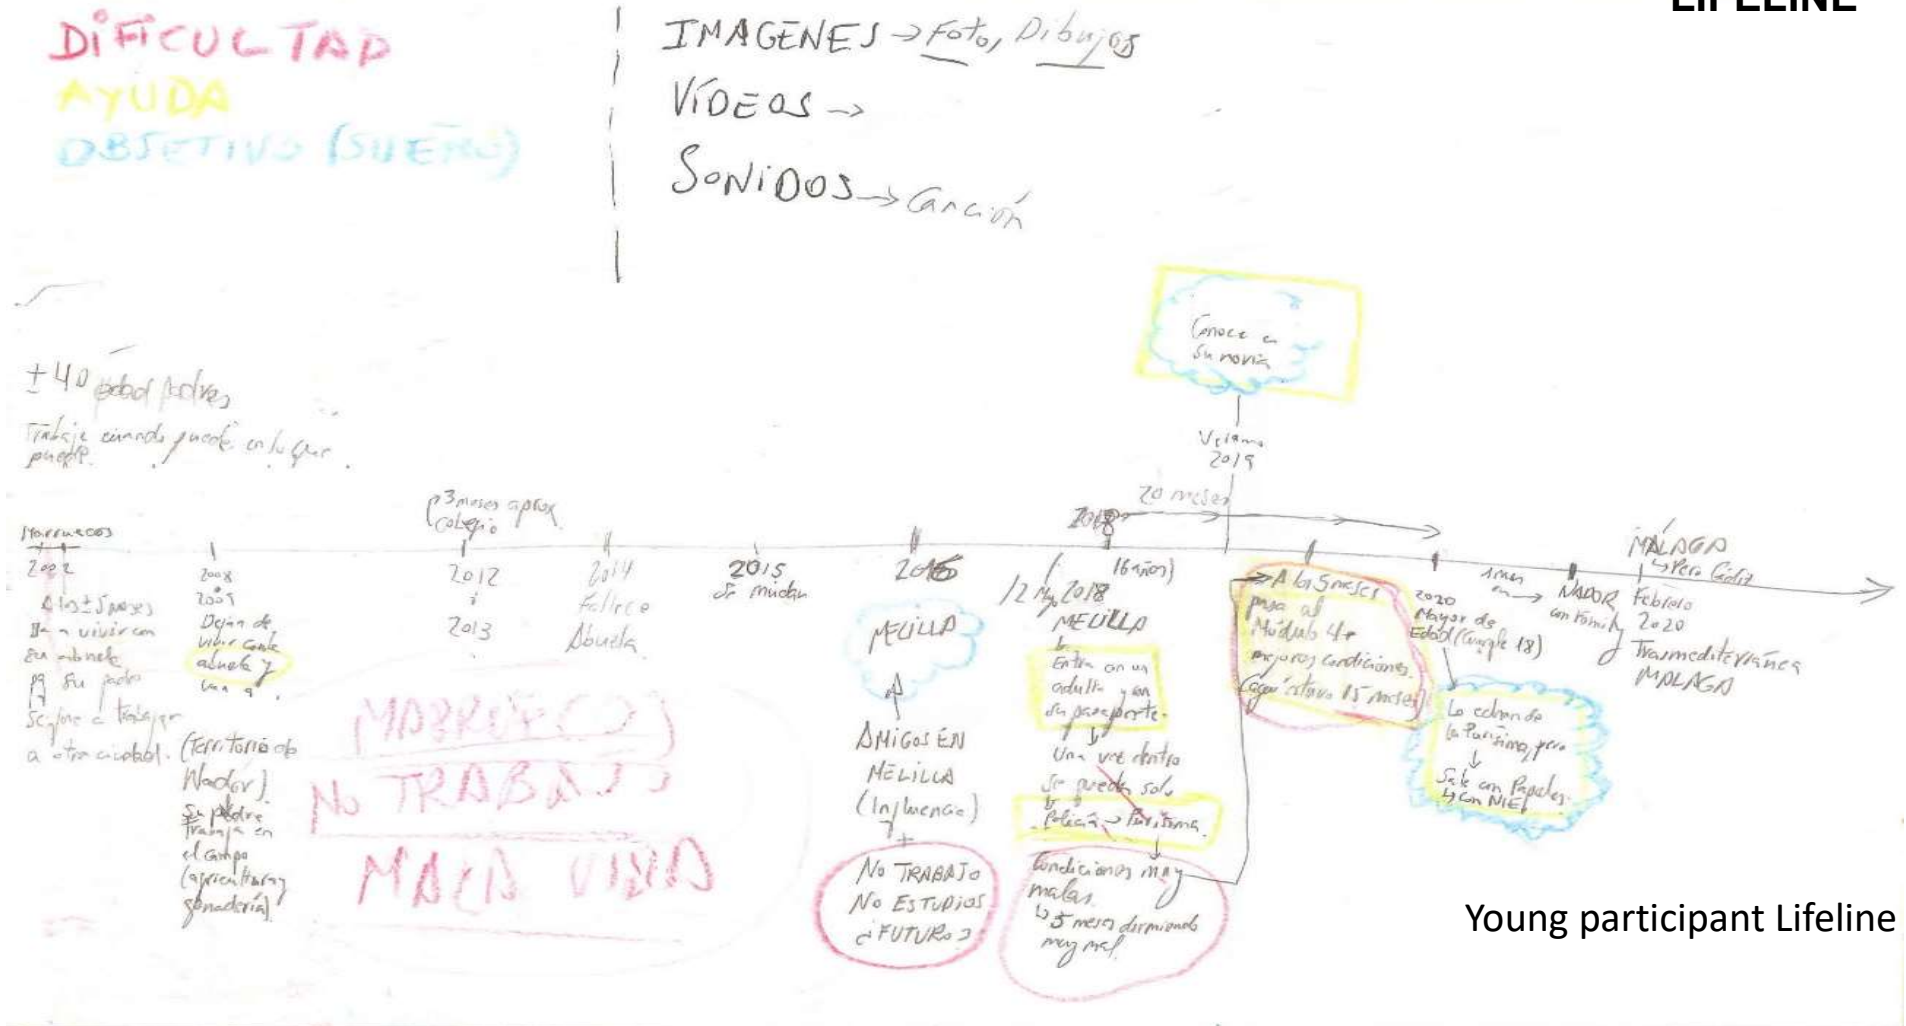 LIFELINE
DIFICULTAD
AYUDA
OBJETIVO (SUEÑO)
IMAGENES → Foto, Dibujos
VÍDEOS →
SONIDOS → Canción
Conoce a
su novia
Verano
2019
20 meses
± 40 edad padres
Trabaja cuando puede en lo que
puede.
Marruecos
2002
A los ± 5 meses
va a vivir con
su abuela
pq su padre
se fue a trabajar
a otra ciudad.
2008
2009
Dejan de
vivir con la
abuela y
(Territorio de
Nador)
Su padre
trabaja en
el campo
(agricultura y
ganadería)
3 meses aprox
colegio
2012
2013
2014
Fallece
Abuela
2015
se mudan
MARRUECOS
NO TRABAJO
MALA VIDA
2016
MELILLA
AMIGOS EN
MELILLA
(Influencia)
+
NO TRABAJO
NO ESTUDIOS
¿FUTURO?
2018
16 años)
12 Mayo 2018
MELILLA
Entra con un
adulto y con
su pasaporte.
Una vez dentro
se queda solo
Policía → Purísima
Condiciones muy
malas.
↳ 5 meses durmiendo
muy mal.
→ A los 5 meses
pasa al
Módulo 4 →
mejores condiciones.
(aquí estuvo 15 meses)
2020
Mayor de
Edad (Cumple 18)
Lo echan de
la Purísima, pero
↓
Sale con Papeles.
↳ con NIE
1 mes
en → NADOR
con family
MÁLAGA
↳ Pero Cádiz
Febrero
2020
Trasmediterránea
MALAGA
Young participant Lifeline